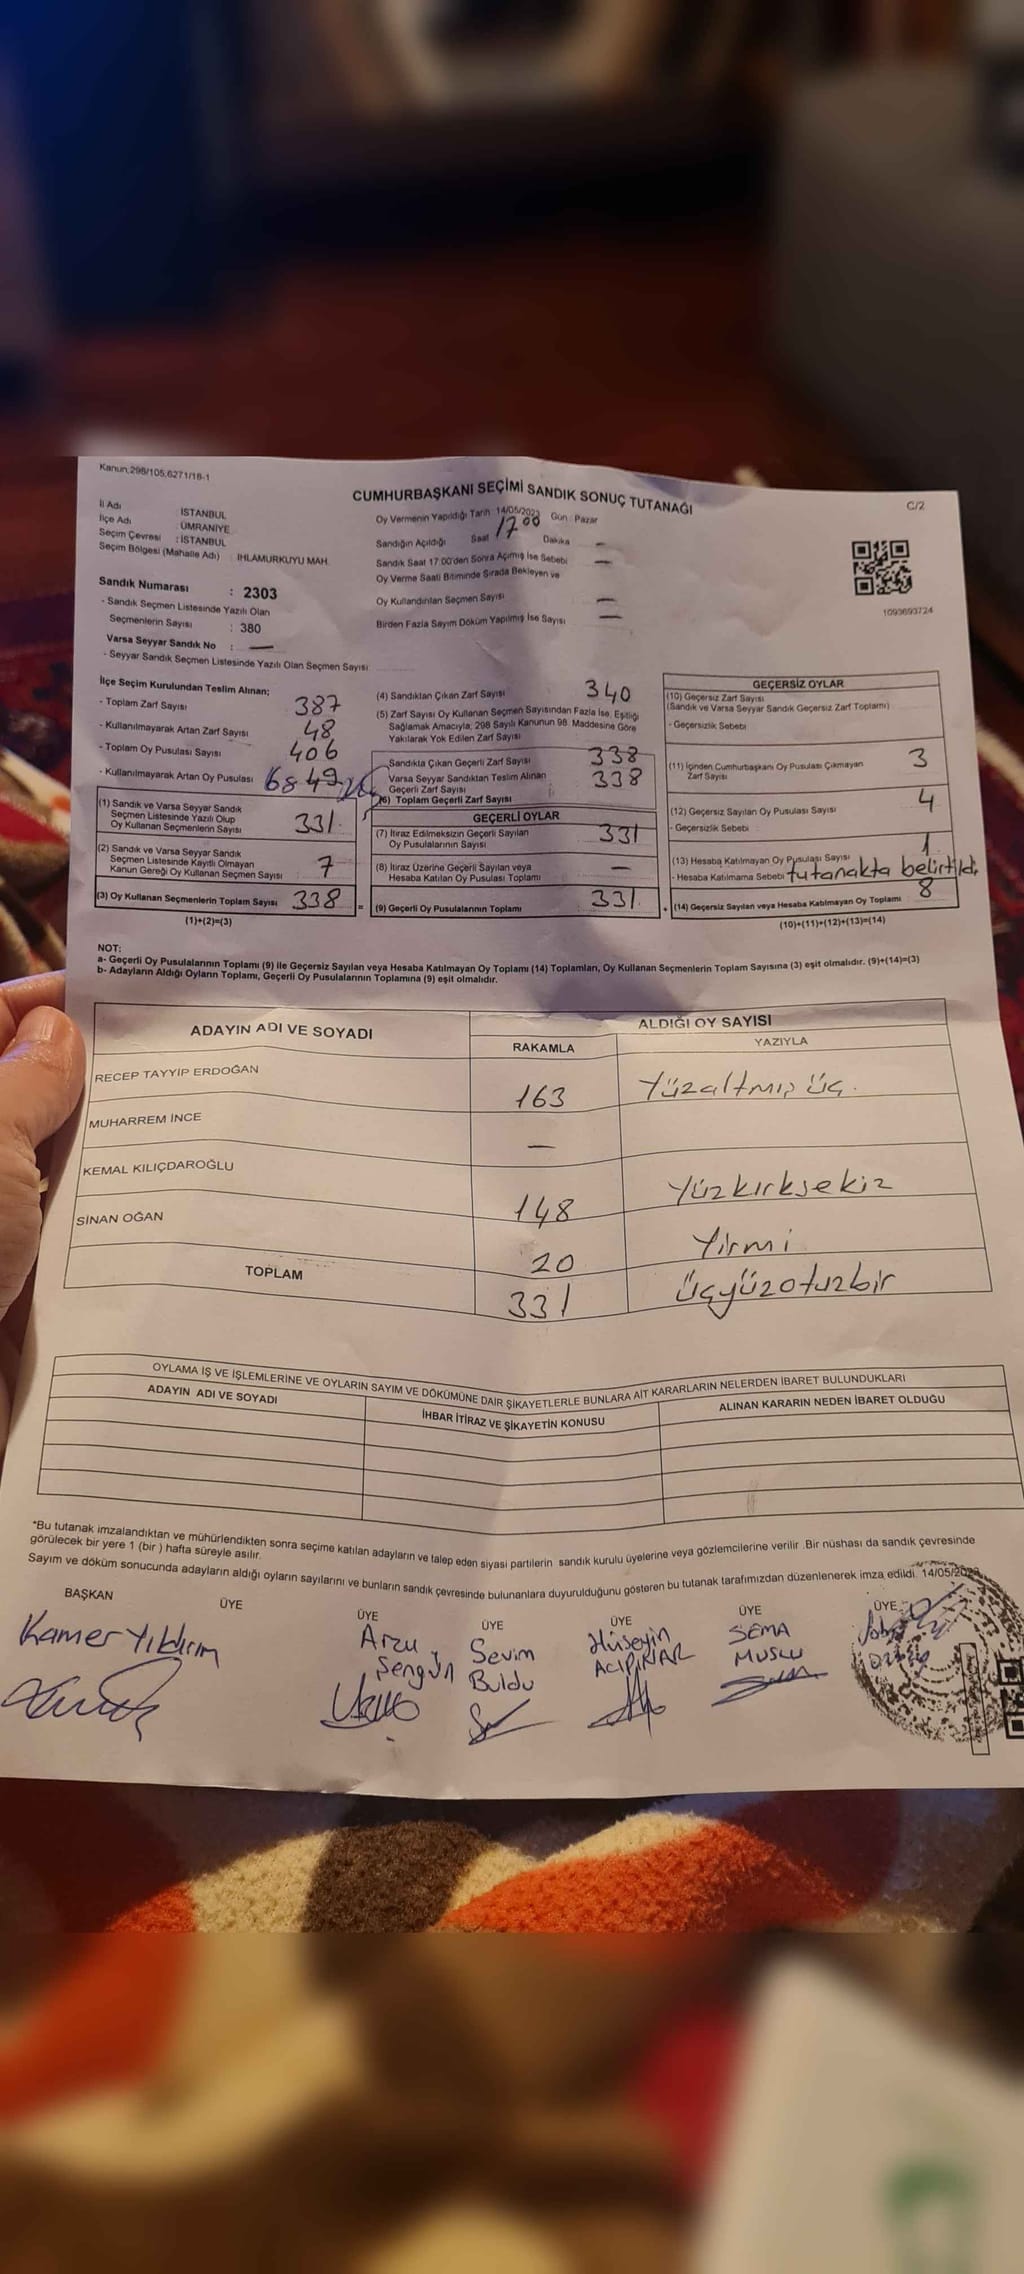 Kanun:298/105,6271/18-1
CUMHURBAŞKANI SEÇİMİ SANDIK SONUÇ TUTANAĞI
C/2
İl Adı : İSTANBUL
İlçe Adı : ÜMRANİYE
Seçim Çevresi : İSTANBUL
Seçim Bölgesi (Mahalle Adı) : IHLAMURKUYU MAH.
Oy Vermenin Yapıldığı Tarih 14/05/2023 Gün : Pazar
Sandığın Açıldığı Saat 17.00 Dakika —
Sandık Saat 17.00'den Sonra Açımış İse Sebebi —
Oy Verme Saati Bitiminde Sırada Bekleyen ve
Oy Kullandırılan Seçmen Sayısı —
Birden Fazla Sayım Döküm Yapılmış İse Sayısı —
1093693724
Sandık Numarası : 2303
- Sandık Seçmen Listesinde Yazılı Olan
Seçmenlerin Sayısı : 380
Varsa Seyyar Sandık No : —
- Seyyar Sandık Seçmen Listesinde Yazılı Olan Seçmen Sayısı
İlçe Seçim Kurulundan Teslim Alınan;
- Toplam Zarf Sayısı 387
- Kullanılmayarak Artan Zarf Sayısı 48
- Toplam Oy Pusulası Sayısı 406
- Kullanılmayarak Artan Oy Pusulası 68
(1) Sandık ve Varsa Seyyar Sandık
Seçmen Listesinde Yazılı Olup
Oy Kullanan Seçmenlerin Sayısı 331
(2) Sandık ve Varsa Seyyar Sandık
Seçmen Listesinde Kayıtlı Olmayan
Kanun Gereği Oy Kullanan Seçmen Sayısı 7
(3) Oy Kullanan Seçmenlerin Toplam Sayısı 338 =
(1)+(2)=(3)
(4) Sandıktan Çıkan Zarf Sayısı 340
(5) Zarf Sayısı Oy Kullanan Seçmen Sayısından Fazla İse, Eşitliği
Sağlamak Amacıyla; 298 Sayılı Kanunun 98. Maddesine Göre
Yakılarak Yok Edilen Zarf Sayısı
Sandıkla Çıkan Geçerli Zarf Sayısı 338
Varsa Seyyar Sandıktan Teslim Alınan
Geçerli Zarf Sayısı 338
(6) Toplam Geçerli Zarf Sayısı
GEÇERLİ OYLAR
(7) İtiraz Edilmeksizin Geçerli Sayılan
Oy Pusulalarının Sayısı 331
(8) İtiraz Üzerine Geçerli Sayılan veya
Hesaba Katılan Oy Pusulası Toplamı —
(9) Geçerli Oy Pusulalarının Toplamı 331 +
GEÇERSİZ OYLAR
(10) Geçersiz Zarf Sayısı
(Sandık ve Varsa Seyyar Sandık Geçersiz Zarf Toplamı)
- Geçersizlik Sebebi
(11) İçinden Cumhurbaşkanı Oy Pusulası Çıkmayan
Zarf Sayısı 3
(12) Geçersiz Sayılan Oy Pusulası Sayısı 4
- Geçersizlik Sebebi
(13) Hesaba Katılmayan Oy Pusulası Sayısı 1
- Hesaba Katılmama Sebebi tutanakta belirtildi
(14) Geçersiz Sayılan veya Hesaba Katılmayan Oy Toplamı 8
(10)+(11)+(12)+(13)=(14)
NOT:
a- Geçerli Oy Pusulalarının Toplamı (9) ile Geçersiz Sayılan veya Hesaba Katılmayan Oy Toplamı (14) Toplamları, Oy Kullanan Seçmenlerin Toplam Sayısına (3) eşit olmalıdır. (9)+(14)=(3)
b- Adayların Aldığı Oyların Toplamı, Geçerli Oy Pusulalarının Toplamına (9) eşit olmalıdır.
ADAYIN ADI VE SOYADI
ALDIĞI OY SAYISI
RAKAMLA YAZIYLA
RECEP TAYYİP ERDOĞAN 163 Yüzaltmış üç.
MUHARREM İNCE —
KEMAL KILIÇDAROĞLU 148 Yüzkırksekiz
SİNAN OĞAN 20 Yirmi
TOPLAM 331 Üçyüzotuzbir
OYLAMA İŞ VE İŞLEMLERİNE VE OYLARIN SAYIM VE DÖKÜMÜNE DAİR ŞİKAYETLERLE BUNLARA AİT KARARLARIN NELERDEN İBARET BULUNDUKLARI
ADAYIN ADI VE SOYADI İHBAR İTİRAZ VE ŞİKAYETİN KONUSU ALINAN KARARIN NEDEN İBARET OLDUĞU
*Bu tutanak imzalandıktan ve mühürlendikten sonra seçime katılan adayların ve talep eden siyasi partilerin sandık kurulu üyelerine veya gözlemcilerine verilir .Bir nüshası da sandık çevresinde
görülecek bir yere 1 (bir ) hafta süreyle asılır.
Sayım ve döküm sonucunda adayların aldığı oyların sayılarını ve bunların sandık çevresinde bulunanlara duyurulduğunu gösteren bu tutanak tarafımızdan düzenlenerek imza edildi. 14/05/2023
BAŞKAN ÜYE ÜYE ÜYE ÜYE ÜYE ÜYE
Kamer Yıldırım
Arzu Şengün
Sevim Buldu
Hüseyin ACIPINAR
SEMA MUSLU